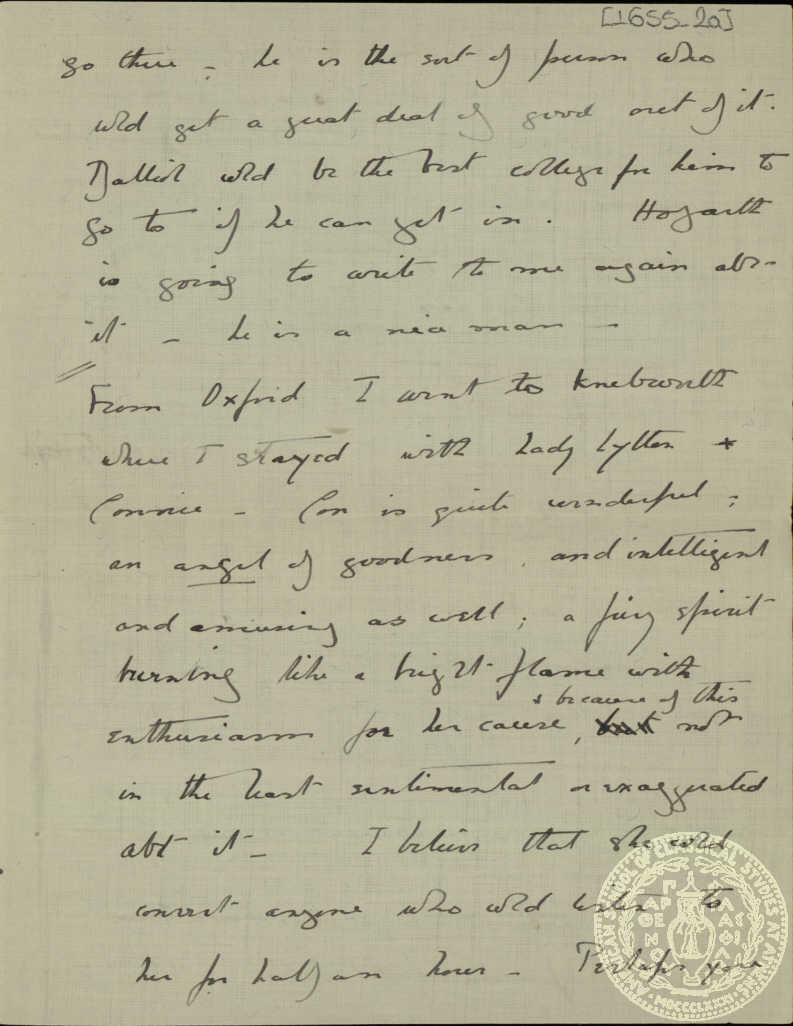 [1655-2a]
go there - he is the sort of person who
wld get a great deal of good out of it.
Balliol wld be the best college for him to
go to if he can get in. Hogarth
is going to write to me again abt
it - he is a nice man -
From Oxford I went to Knebworth
where I stayed with Lady Lytton +
Connie - Con is quite wonderful;
an angel of goodness, and intelligent
and amusing as well; a fiery spirit
burning like a bright flame with
enthusiasm for her cause, + because of this not
in the least sentimental or exaggerated
abt it - I believe that she cld
convert anyone who wld listen to
her for half an hour - Perhaps you
AMERICAN SCHOOL OF CLASSICAL STUDIES AT ATHENS
MDCCCLXXXI
ΠΑΡΘΕΝΟΥ ΦΙΛΑΣ